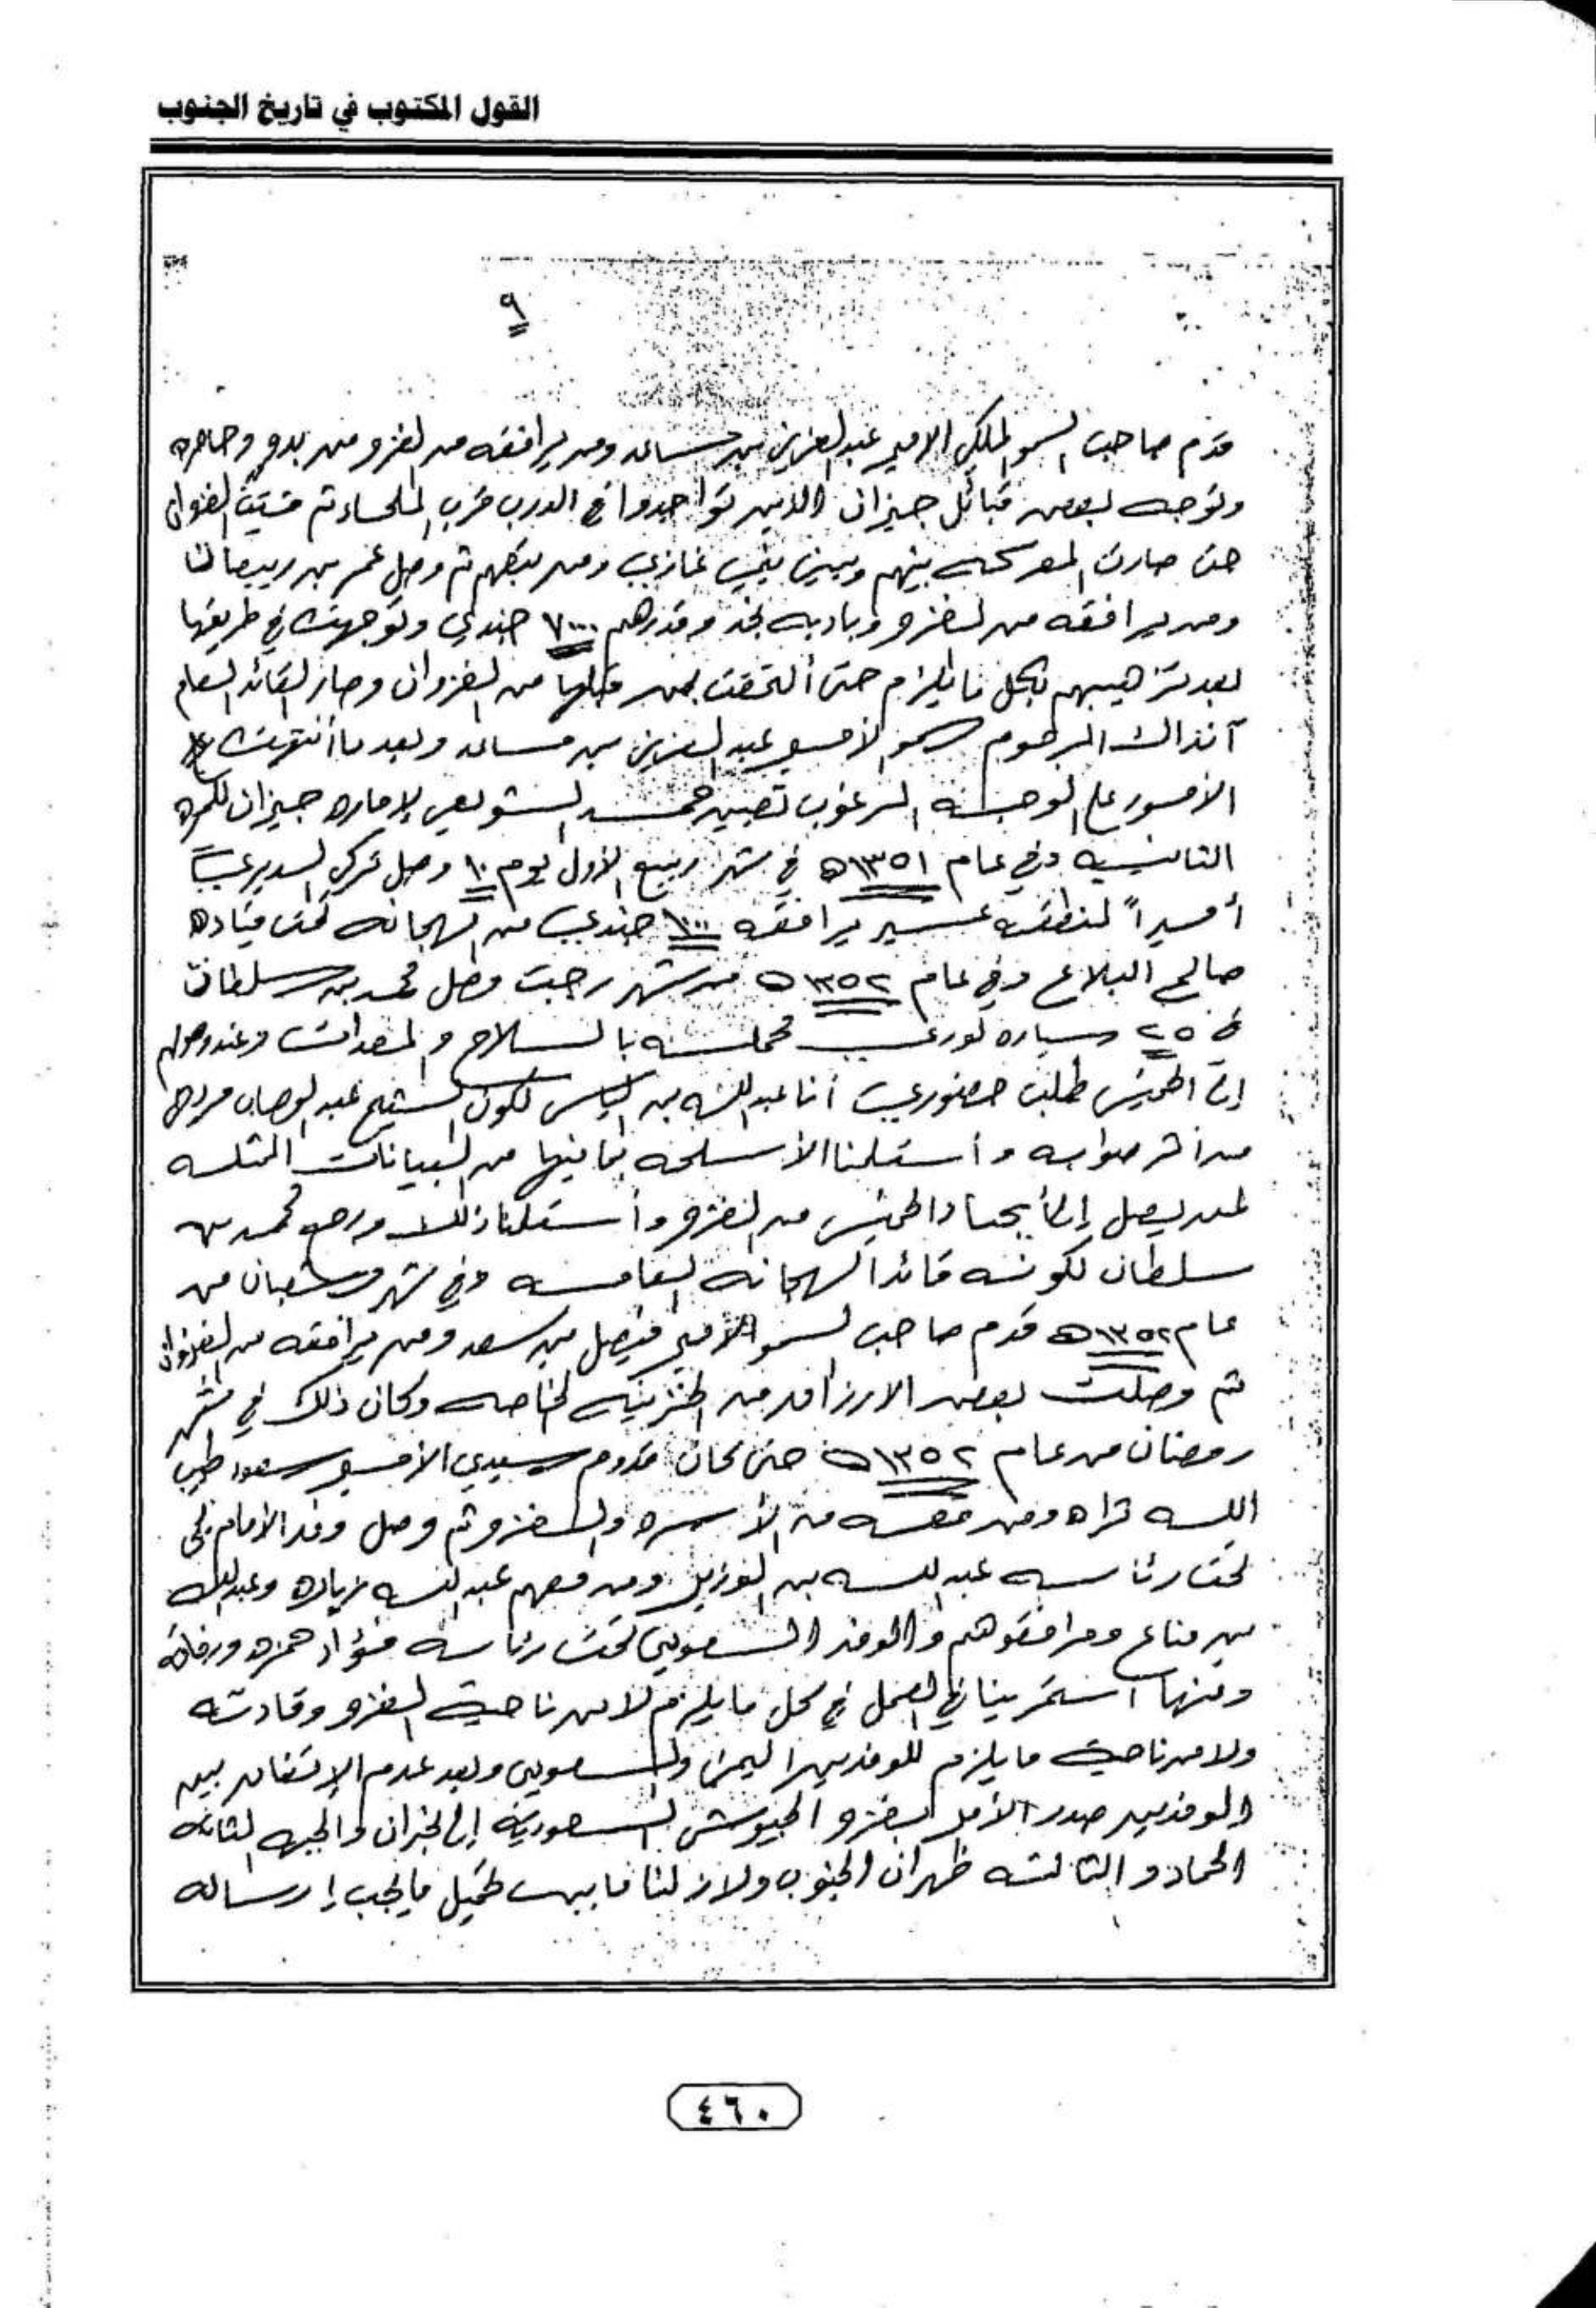 القول المكتوب في تاريخ الجنوب
٩
قدم صاحب السمو الملكي الامير عبدالعزيز بن مساعد ومن يرافقه من الغزو من بدو وحاضره
وتوجه لبعض قبائل جيزان الذين تواجدوا في الدرب قرب الملحاء ثم الغزوان
حتى صارت المعركه بينهم وبين غازي ومن ثم وصل عمر بن ربيعان
ومن يرافقه من الغزو وباديه نجد وقدرهم ٧٠٠٠ جندي وتوجهت في طريقها
بعد ترهيبهم بكل ما يلزم حتى ألتحقت بمن قبلها من الغزوان وصار القائد العام
آنذاك المرحوم سمو الأمير عبدالعزيز بن مساعد وبعد ما أنتهت
الأمور على الوجه المرغوب تعيين حمد الشويعي لإماره جيزان للمره
الثانيه وفي عام ١٣٥١ه في شهر ربيع الأول يوم ١٠ وصل تركي السديري
أميراً لمنطقة عسير يرافقه ١٠٠ جندي من الهجانه تحت قياده
صالح البلاع وفي عام ١٣٥٢ه من شهر رجب وصل محمد بن سلطان
في ٢٥ سياره لوري محمله بالسلاح والمعدات وعند وصولهم
إلى الخميس طلبت حضوري أنا عبدالله بن الياس لكون الشيخ عبدالوهاب
وأستلمنا الأسلحه بما فيها من البيانات
لمن يصل إلى أبها والخميس من الغزو وأستلمنا ذلك ورجع محمد بن
سلطان لكونه قائد الهجانه العامه وفي شهر شعبان من
عام ١٣٥٢ه قدم صاحب السمو الأمير فيصل بن سعد ومن يرافقه من الغزوان
ثم وصلت بعض الارزاق من الخزينه الخاصه وكان ذلك في شهر
رمضان من عام ١٣٥٢ه حتى كان قدوم سيدي الأمير سعود طيب
الله ثراه ومن معه من الأسره والغزو ثم وصل وفد الأمام يحى
تحت رئاسه عبدالله بن الوزير ومن معهم عبدالله زياره وعبدالله
بن مناع ومرافقوهم والوفد السعودي تحت رئاسه فؤاد حمزه ورفاقه
ومنها أستمرينا في العمل في كل ما يلزم لا من ناحية الغزو وقادته
ولا من ناحية ما يلزم للوفدين اليمني والسعودي وبعد عدم الإتفاق بين
الوفدين صدر الأمر بغزو الجيوش السعودية إلى نجران والجبهه الثانيه
الحماد والثالثه ظهران الجنوب ولازلنا مابين تحميل مايجب إرساله
٤٦٠